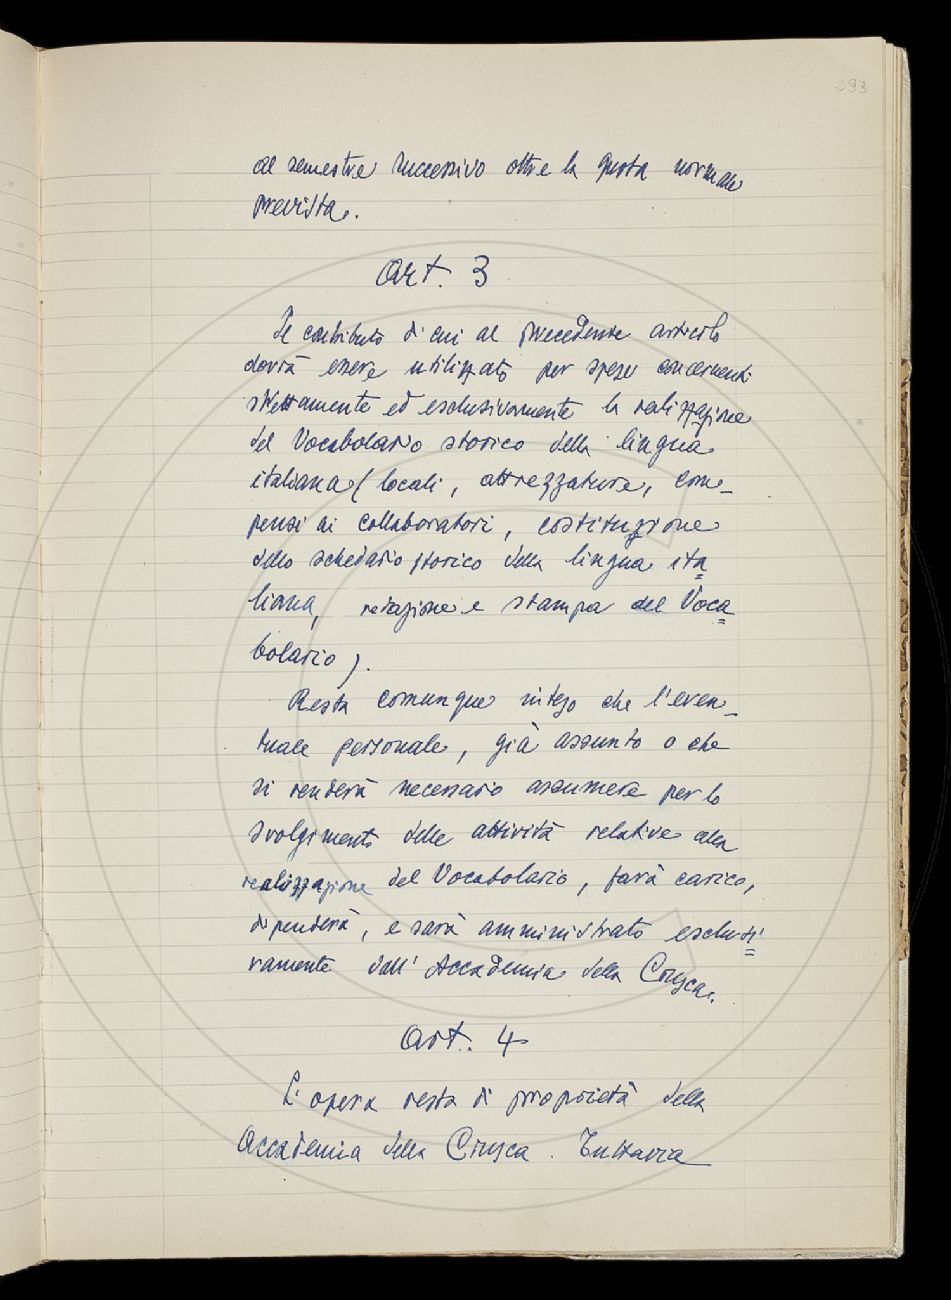 293
al semestre successivo oltre la quota normale
prevista.
Art. 3
Il contributo di cui al precedente articolo
dovrà essere utilizzato per spese concernenti
strettamente ed esclusivamente la realizzazione
del Vocabolario storico della lingua
italiana (locali, attrezzature, com-
pensi ai collaboratori, costituzione
dello schedario storico della lingua ita=
liana, redazione e stampa del Voca=
bolario).
Resta comunque inteso che l'even-
tuale personale, già assunto o che
si renderà necessario assumere per lo
svolgimento delle attività relative alla
realizzazione del Vocabolario, farà carico,
dipenderà, e sarà amministrato esclusi=
vamente dall'Accademia della Crusca.
Art. 4
L'opera resta di proprietà della
Accademia della Crusca. Tuttavia